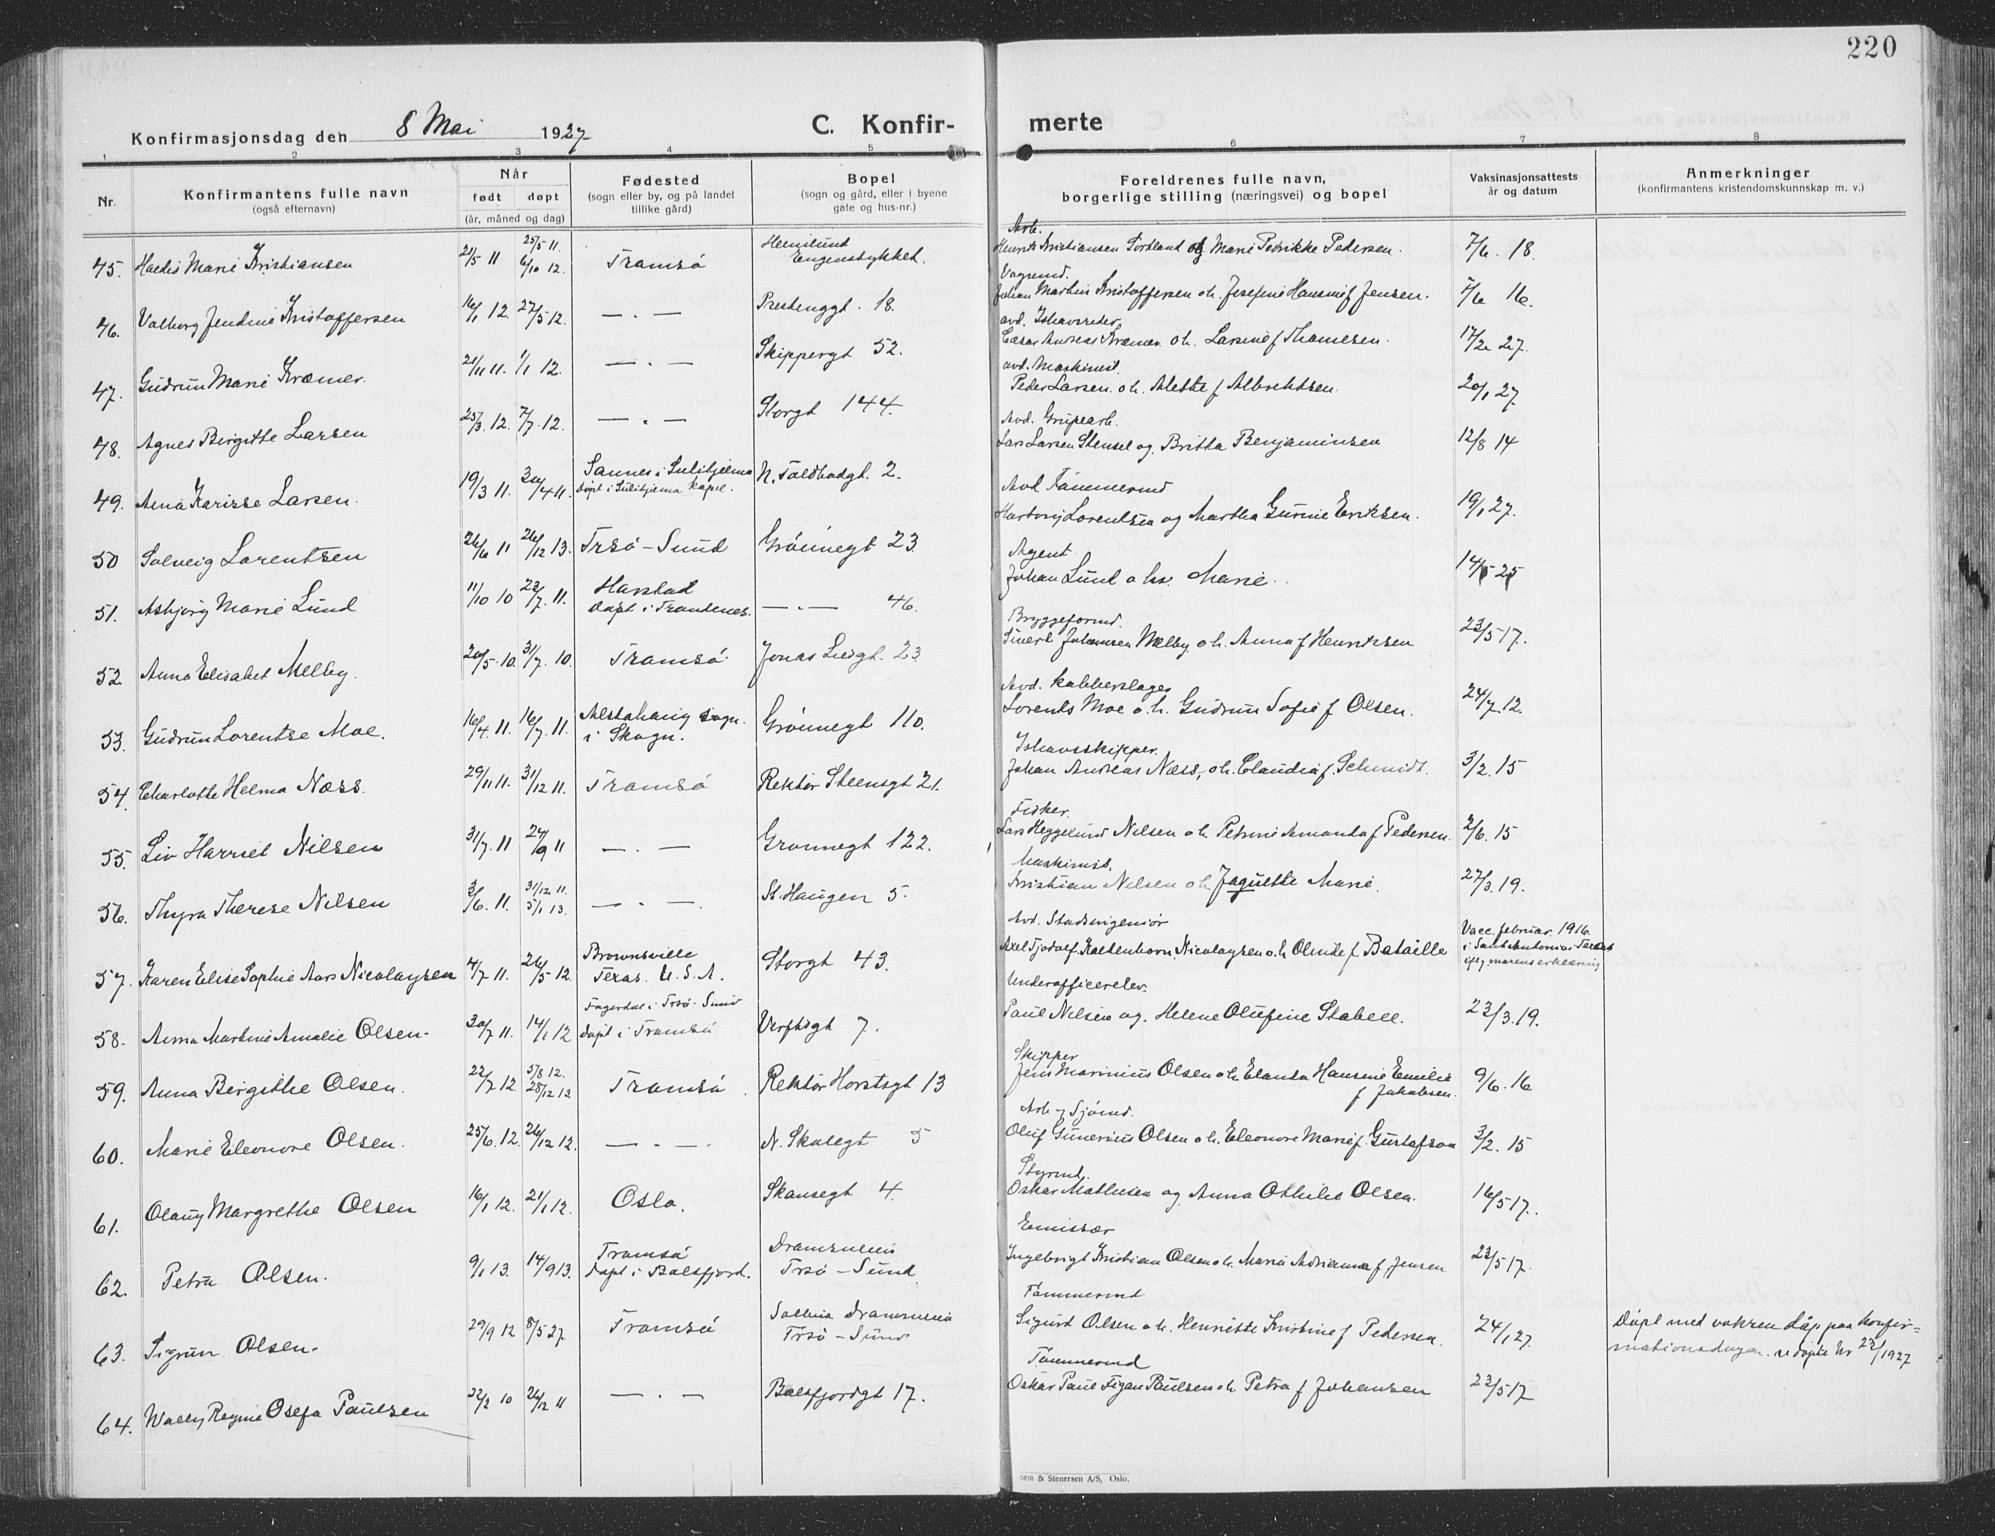 220
Konfirmasjonsdag den 8 Mai 1927
C. Konfir- merte
1 2 3 4 5 6 7 8
Nr.
Konfirmantens fulle navn
(også efternavn)
Når
født døpt
(år, måned og dag)
Fødested
(sogn eller by, og på landet
tillike gård)
Bopel
(sogn og gård, eller i byene
gate og hus-nr.)
Foreldrenes fulle navn,
borgerlige stilling (næringsvei) og bopel
Vaksinasjonsattests
år og datum
Anmerkninger
(konfirmantens kristendomskunnskap m. v.)
45. Marie Kristiansen 21/5 11 25/5 11. 6/10 12. Tromsø
Arb.
Kristiansen Sortland og Marie Pedrikke Pedersen. 7/6. 18.
46. Valborg Jendine Kristoffersen 16/1 12. 27/5 12. — " — Prestenggt. 18.
Johan Martin Kristoffersen o.h. Josefine f. Jensen. 7/6 16.
47. Gudrun Marie Kræmer. 21/11 11. 1/1 12. — " — Skippergt 52.
avd. Ishavsreder,
Andreas Kræmer o.h. Larsine f Thomesen. 17/2 27.
48. Agnes Birgitte Larsen 25/3 12. 7/7 12. — " — Storgt 144.
avd. Maskinist.
Peder Larsen o.h. Alette f Albrektsen. 20/1 27.
49. Anna Karisse Larsen. 19/3 11. 30/4 11. Sannes i Sulitjelma
Døpt i Sulitjelma Kapel. N. Toldbodgt. 2.
Avd. Grupearb.
Lars Larsen Stensel og Britta Benjaminsen 12/8 14
50 Solveig Lorentsen 26/6 11 26/12 13. Trsø-Sund Grønnegt 23.
Avd Tømmermd
Hartvig Lorentsen og Martha Gurine Eriksen. 19/1 27.
51. Asbjørg Marie Lund 11/10 10 23/7 11. Harstad
Døpt i Trondenes. — " — 46.
Agent
Johan Lund o hu. Marie.
52. Anna Elisabet Melby. 20/5 10. 31/7 10. Tromsø Jonas Liesgt. 23
Bryggeformd.
Sivert Johansen Melby. o.h. Anna f Henriksen 23/5 17.
53. Gudrun Lorentse Moe. 16/4. 11. 16/7 11. Alstahaug sogn.
i Skogn. Grønnegt 110.
Avd. kobberslager
Lorents Moe o.h. Gudrun Sofie f Olsen. 24/7 12.
54. Charlotte Helma Næss. 29/11 11. 31/12 11. Tromsø Rektor Steensgt 21.
Ishavsskipper.
Johan Andreas Næss, o.h. Claudia f. Schmidt. 3/2. 15
55. Liv Harriet Nilsen 31/7. 11 24/9 11 — " — Grønnegt 122.
Fisker.
Lars Heggelund Nilsen o.h. Petrine Amanda f Pedersen. 2/6. 15
56. Thyra Therese Nilsen 3/6. 11. 31/12 11. 5/1 13. — " — St. Haugen 5.
Maskinist.
Kristian Nilsen o.h. Jaguette Marie. 27/3. 19.
57. Karen Elise Sophie Aars Nicolaysen 4/7 11. 26/5 12. Brownsville
Texas. U.S.A. Storgt 43.
Avd. Stadsingeniør
Axel Fjodolf Kaltenborn Nicolaysen o.h. f Bataille
Vacc. februar 1916.
58. Anna Martine Amalie Olsen. 30/7 11. 14/1 12 Fagerdal i Trsø-Sund
Døpt i Tromsø Verftsgt 7.
Underofficerelev.
Paul Nilsen og. Helene Olufine Stabell. 23/3. 19.
59. Anna Birgithe Olsen. 22/7 12. 5/8 12. 28/12 13. Tromsø Rektor Horstsgt 13
Skipper
Jens Marinius Olsen o.h. Hansine Emilie
f Jakobsen. 9/6. 16
60. Marie Eleonore Olsen. 25/6. 12. 26/12 12. — " — N. Skolegt 5
Arb og Sjømd.
Oluf Gunerius Olsen o.h. Eleonore Marie f. Gustafson 3/2. 15
61. Olaug Margrethe Olsen 16/1 12. 21/1 12. Oslo. Skansegt 4.
Styrmd.
Oskar Mathisen og Anna Othilie Olsen. 16/5 17.
62. Petra Olsen. 9/1 13. 14/9 13. Tromsø
Døpt i Balsfjord. Dramsveien
Trsø-Sund
Emissær
Ingebrigt Kristian Olsen o.h. Marie Adriane f. Jensen 23/5 17.
63. Sigrun Olsen. 29/9 12 8/5 27. Tromsø Dramsveien
Trsø-Sund
Tømmermd
Sigurd Olsen o.h. Henriette Kristine f Pedersen. 24/1 27.
Døpt med voksen dåp paa konfir=
mationsdagen. se døpte Nr 22/1927
64. Wally Regine Osefa Paulsen 22/2 10 26/12 11 — " — Balsfjordgt 17.
Tømmermd
Oskar Paul Paulsen o.h. Petra f Johansen 23/5 17
Sem & Stenersen A/S, Oslo.